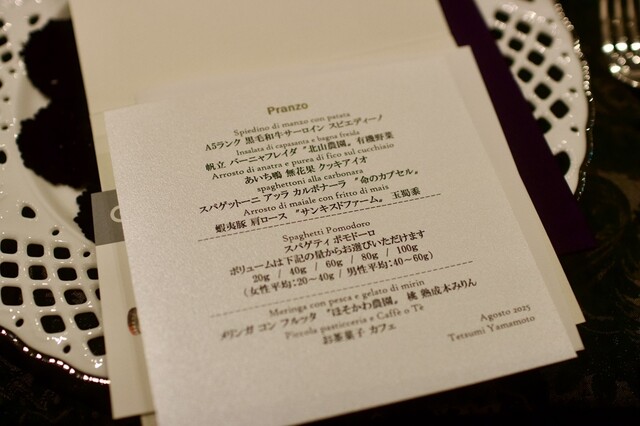 Pranzo
Spiedino di manzo con patata
A5ランク 黒毛和牛サーロイン スピエディーノ
Insalata di capasanta e bagna freida
帆立 バーニャフレイダ〝北山農園〟有機野菜
Arrosto di anatra e purea di fico sul cucchiaio
あいち鴨 無花果 クッキアイオ
spaghettoni alla carbonara
スパゲットーニ アッラ カルボナーラ 〝命のカプセル〟
Arrosto di maiale con fritto di mais
蝦夷豚 肩ロース 〝サンキスドファーム〟 玉蜀黍
Spaghetti Pomodoro
スパゲティ ポモドーロ
ボリュームは下記の量からお選びいただけます
20g / 40g / 60g / 80g / 100g
(女性平均:20~40g / 男性平均:40~60g)
Meringa con pesca e gelato di mirin
メリンガ コン フルッタ 〝ほそかわ農園〟 桃 熟成本みりん
Piccola pasticceria e Caffè o Tè
お茶菓子 カフェ
Agosto 2025
Tetsumi Yamamoto